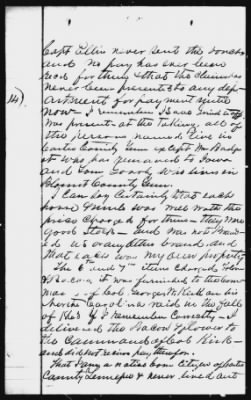 Capt Ellis never sent the vouchers
and no pay has ever been
recd for them & that the claim has
never been presented to any dep-
artment for payment until
now - I remember Isaac
was present at the taking, all of
the persons named live in
Carter County Tenn except Mr
who has removed to Iowa
and Tom who lives in
County Tenn.
14)
I can say certainly that each
horse & mule was worth the
price charged for them - they were
good stock - and was not brand-
ed US or any other brand, and
that each was my own property
The 6th and 7th items charged
Bacon, it was furnished to the com-
mand of Col George W Kirk on his
North Carolina raid in the fall
of I remember correctly - I
delivered the Bacon & flour to
the Command of Col Kirk -
and did not receive pay therefor.
That I am a native born citizen of Carter
County Tennessee & never lived out